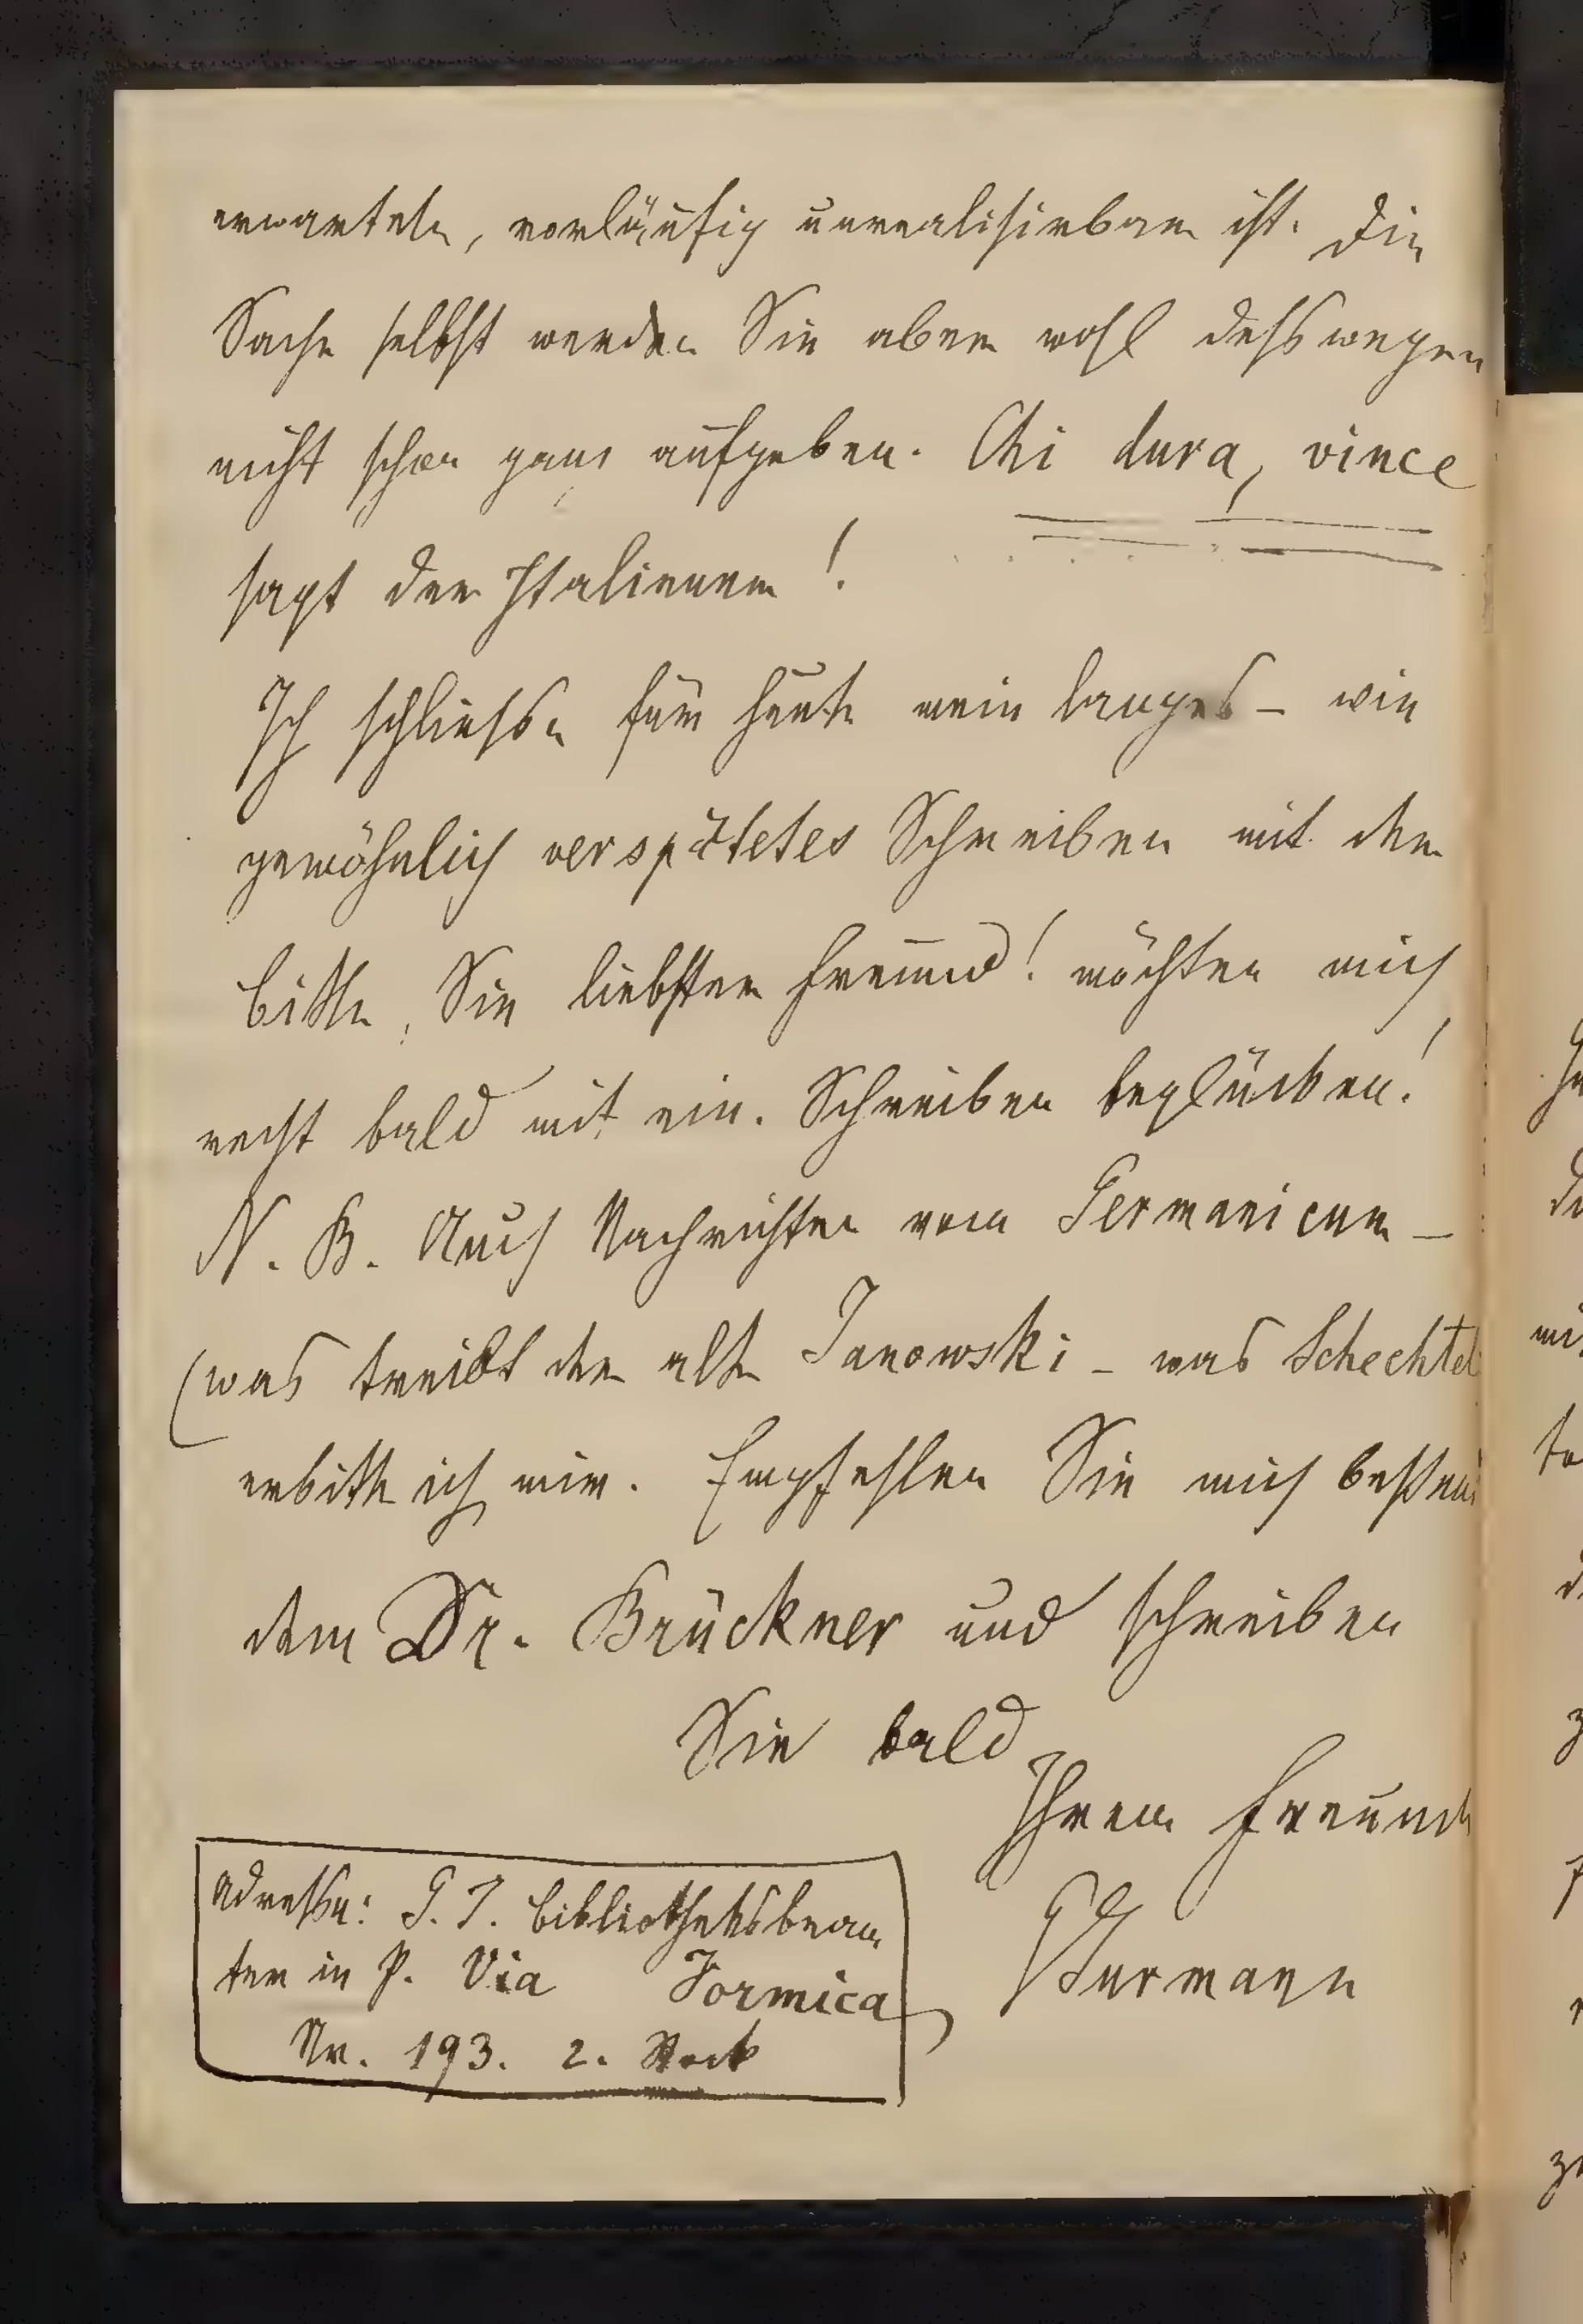 erwarteten, vorläufig unrealisirbar ist. Die
Sache selbst werden Sie aber wohl desswegen
nicht schon ganz aufgeben. Chi dura, vince
sagt der Italiener!
Ich schliesse für heute mein langes – wie
gewöhnlich verspätetes Schreiben mit der
Bitte, Sie liebster Freund! möchten mich
recht bald mit ein. Schreiben beglücken!
N. B. Auch Nachrichten vom Germanicum –
(was treibt der alte Janowski – was Schechtel
erbitte ich mir. Empfehlen Sie mich bestens
dem Dr. Brückner und schreiben
Sie bald
Ihrem Freunde
Thurmann
Adresse: G. T. Bibliotheksbeam
ter in P. Via Formica
Nr. 193. 2. Stock